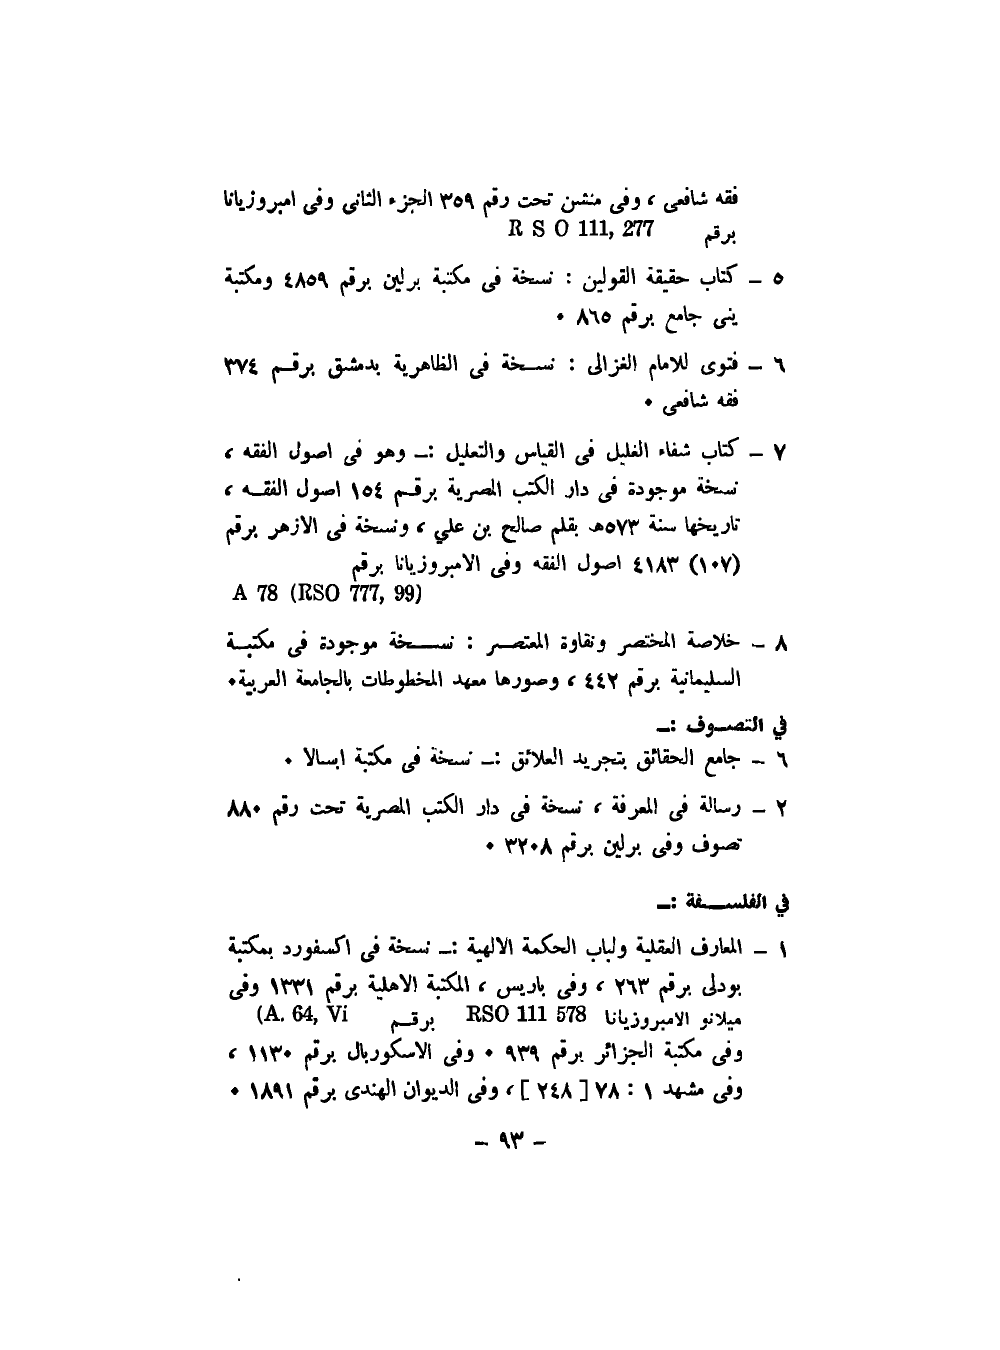 فقه شافعى ، وفى منشن تحت رقم ٣٥٩ الجزء الثانى وفى امبروزيانا
برقم R S O 111, 277
٥ ــ كتاب حقيقة القولين : نسخة فى مكتبة برلين برقم ٤٨٥٩ ومكتبة
ينى جامع برقم ٨٦٥ ٠
٦ ــ فتوى للامام الغزالى : نســخة فى الظاهرية بدمشق برقــم ٣٧٤
فقه شافعى ٠
٧ ــ كتاب شفاء الغليل فى القياس والتعليل :ــ وهو فى اصول الفقه ،
نسخة موجودة فى دار الكتب المصرية برقــم ١٥٤ اصول الفقــه ،
تاريخها سنة ٥٧٣هـ بقلم صالح بن علي ، ونسخة فى الازهر برقم
(١٠٧) ٤١٨٣ اصول الفقه وفى الامبروزيانا برقم
A 78 (RSO 777, 99)
٨ ــ خلاصة المختصر ونقاوة المعتصــر : نســـخة موجودة فى مكتبــة
السليمانية برقم ٤٤٢ ، وصورها معهد المخطوطات بالجامعة العربية٠
في التصــوف :ــ
٦ ــ جامع الحقائق بتجريد العلائق :ــ نسخة فى مكتبة ابسالا ٠
٢ ــ رسالة فى المعرفة ، نسخة فى دار الكتب المصرية تحت رقم ٨٨٠
تصوف وفى برلين برقم ٣٢٠٨ ٠
في الفلســـفة :ــ
١ ــ المعارف العقلية ولباب الحكمة الالهية :ــ نسخة فى اكسفورد بمكتبة
بودلى برقم ٢٦٣ ، وفى باريس ، المكتبة الاهلية برقم ١٣٣١ وفى
ميلانو الامبروزيانا RSO 111 578 برقــم (A. 64, Vi
وفى مكتبة الجزائر برقم ٩٣٩ ٠ وفى الاسكوريال برقم ١١٣٠ ،
وفى مشهد ١ : ٧٨ [ ٢٤٨ ] ، وفى الديوان الهندى برقم ١٨٩١ ٠
ــ ٩٣ ــ